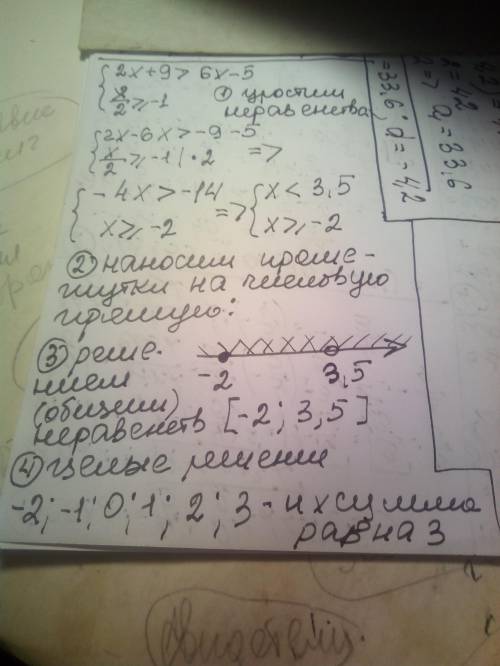 { 2x+9 > 6x-5
{ x/2 ≥ -1 ① упростим неравенства
{ 2x-6x > -9-5
{ x/2 ≥ -1 | · 2 =>
{ -4x > -14 => { x < 3,5
{ x ≥ -2 { x ≥ -2
② наносим проме-
жутки на числовую
прямую:
③ реше-
нием
-2 3,5
(общим)
неравенств [-2; 3,5]
④ целые решения
-2; -1; 0; 1; 2; 3 - их сумма
равна 3
a₁ = 33,6
= 33,6; d = -4,2